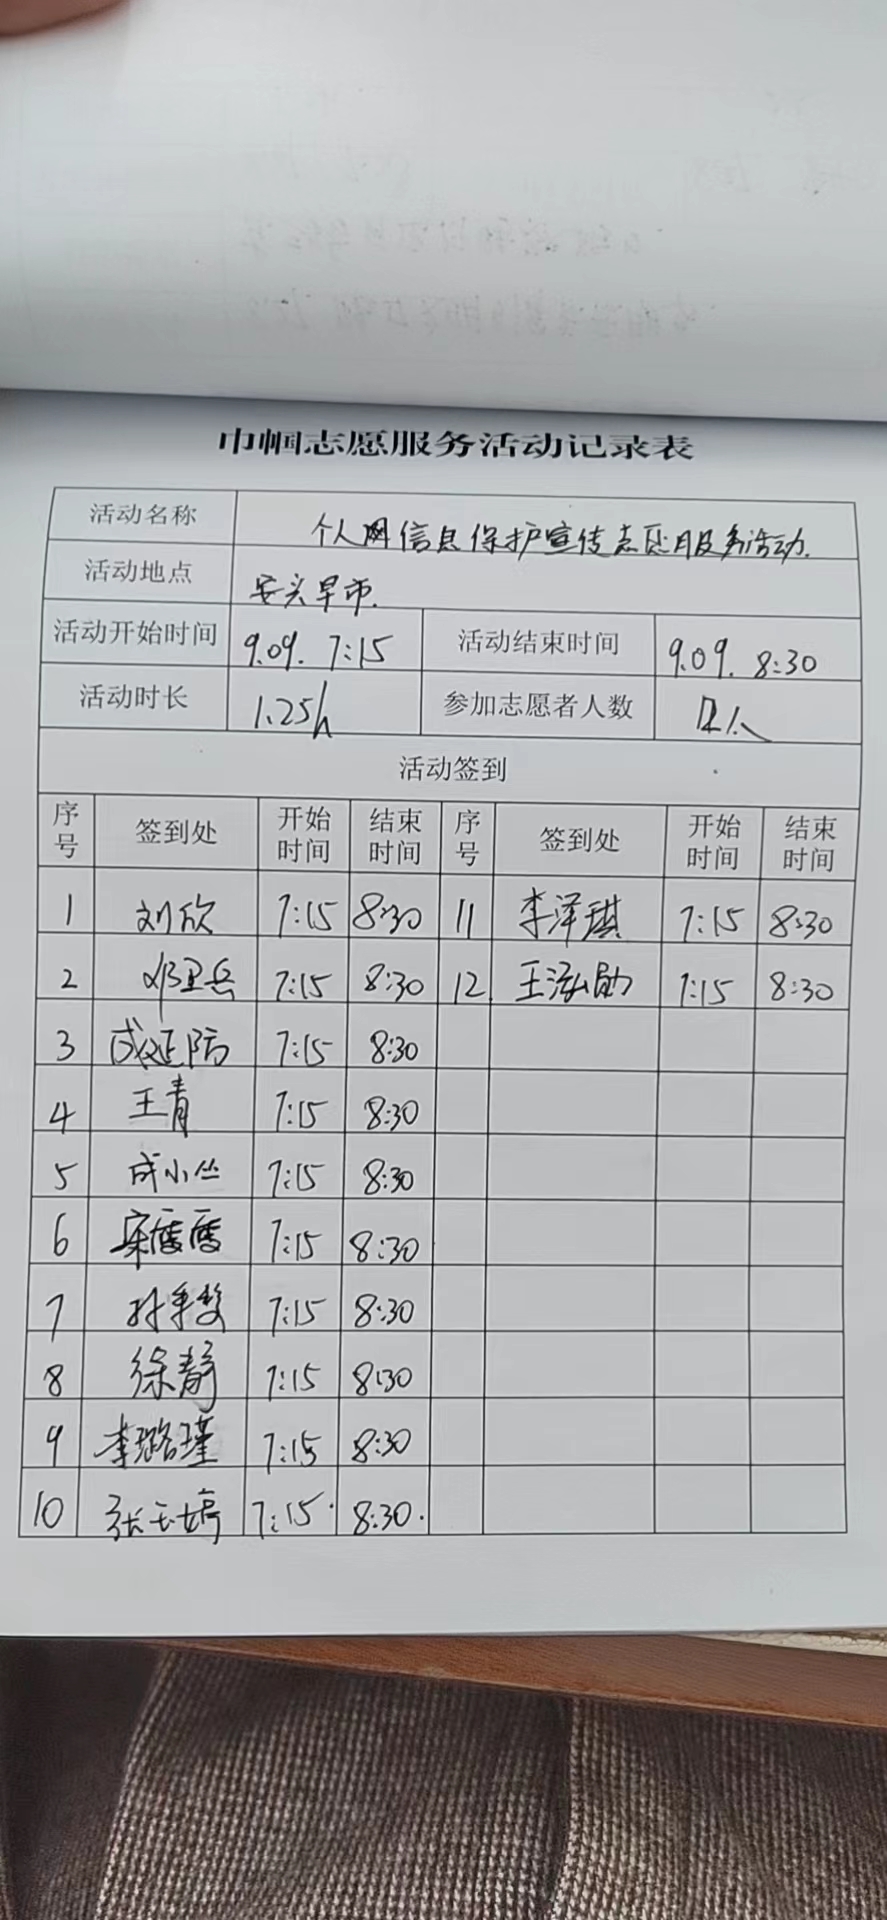 巾帼志愿服务活动记录表
活动名称 个人网信息保护宣传志愿服务活动.
活动地点 安头早市.
活动开始时间 9.09. 7:15 活动结束时间 9.09. 8:30
活动时长 1.25h 参加志愿者人数 12人
活动签到
序号 签到处 开始时间 结束时间 序号 签到处 开始时间 结束时间
1 刘欣 7:15 8:30 11 李泽琪 7:15 8:30
2 邓卫兵 7:15 8:30 12 王泓勋 7:15 8:30
3 成延防 7:15 8:30
4 王青 7:15 8:30
5 成小丛 7:15 8:30
6 7:15 8:30
7 7:15 8:30
8 徐静 7:15 8:30
9 李璐瑾 7:15 8:30
10 张玉婷 7:15. 8:30.